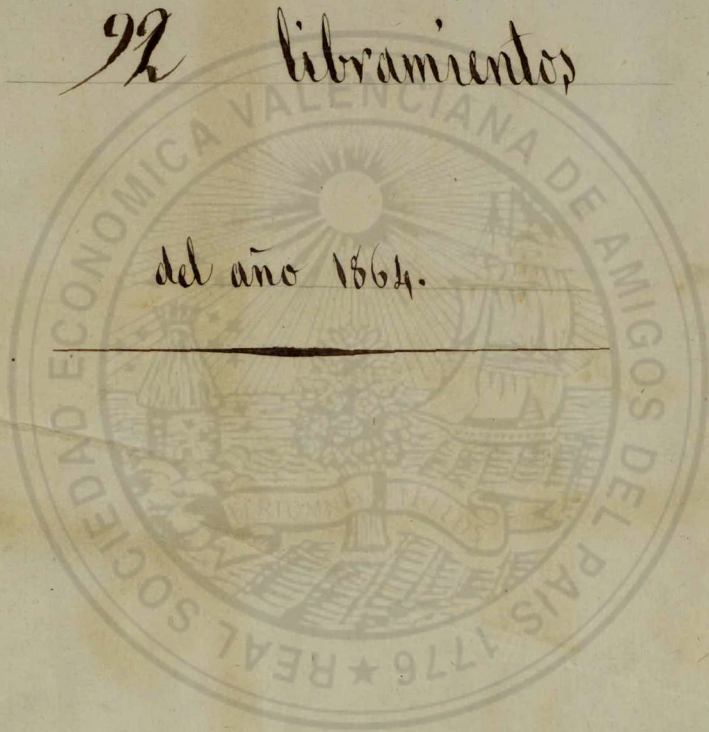 92 libramientos
del año 1864.
REAL SOCIEDAD ECONOMICA VALENCIANA DE AMIGOS DEL PAIS 1776 ★